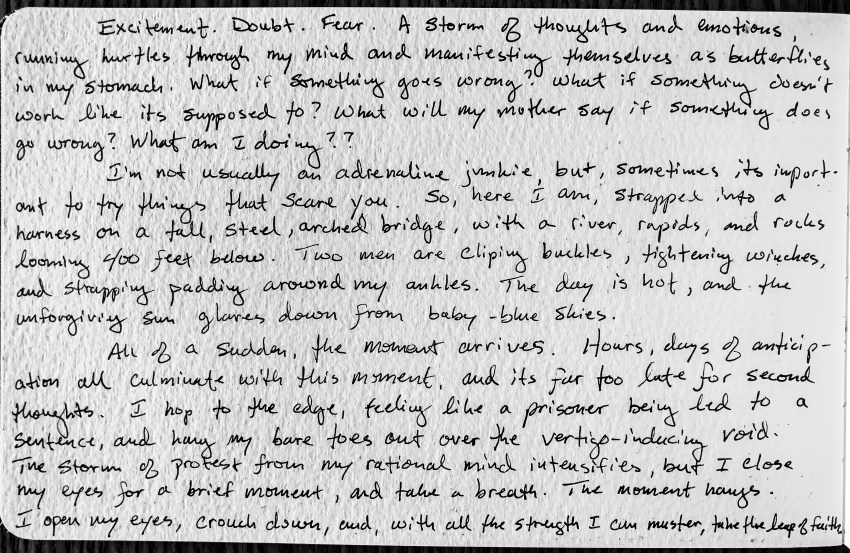 Excitement. Doubt. Fear. A storm of thoughts and emotions,
running hurtles through my mind and manifesting themselves as butterflies
in my stomach. What if something goes wrong? What if something doesn't
work like its supposed to? What will my mother say if something does
go wrong? What am I doing??
I'm not usually an adrenaline junkie, but, sometimes its import-
ant to try things that scare you. So, here I am, strapped into a
harness on a tall, steel, arched bridge, with a river, rapids, and rocks
looming 400 feet below. Two men are cliping buckles, tightening winches,
and strapping padding around my ankles. The day is hot, and the
unforgiving sun glares down from baby-blue skies.
All of a sudden, the moment arrives. Hours, days of anticip-
ation all culminate with this moment, and its far too late for second
thoughts. I hop to the edge, feeling like a prisoner being led to a
sentence, and hang my bare toes out over the vertigo-inducing void.
The storm of protest from my rational mind intensifies, but I close
my eyes for a brief moment, and take a breath. The moment hangs.
I open my eyes, crouch down, and, with all the strength I can muster, take the leap of faith